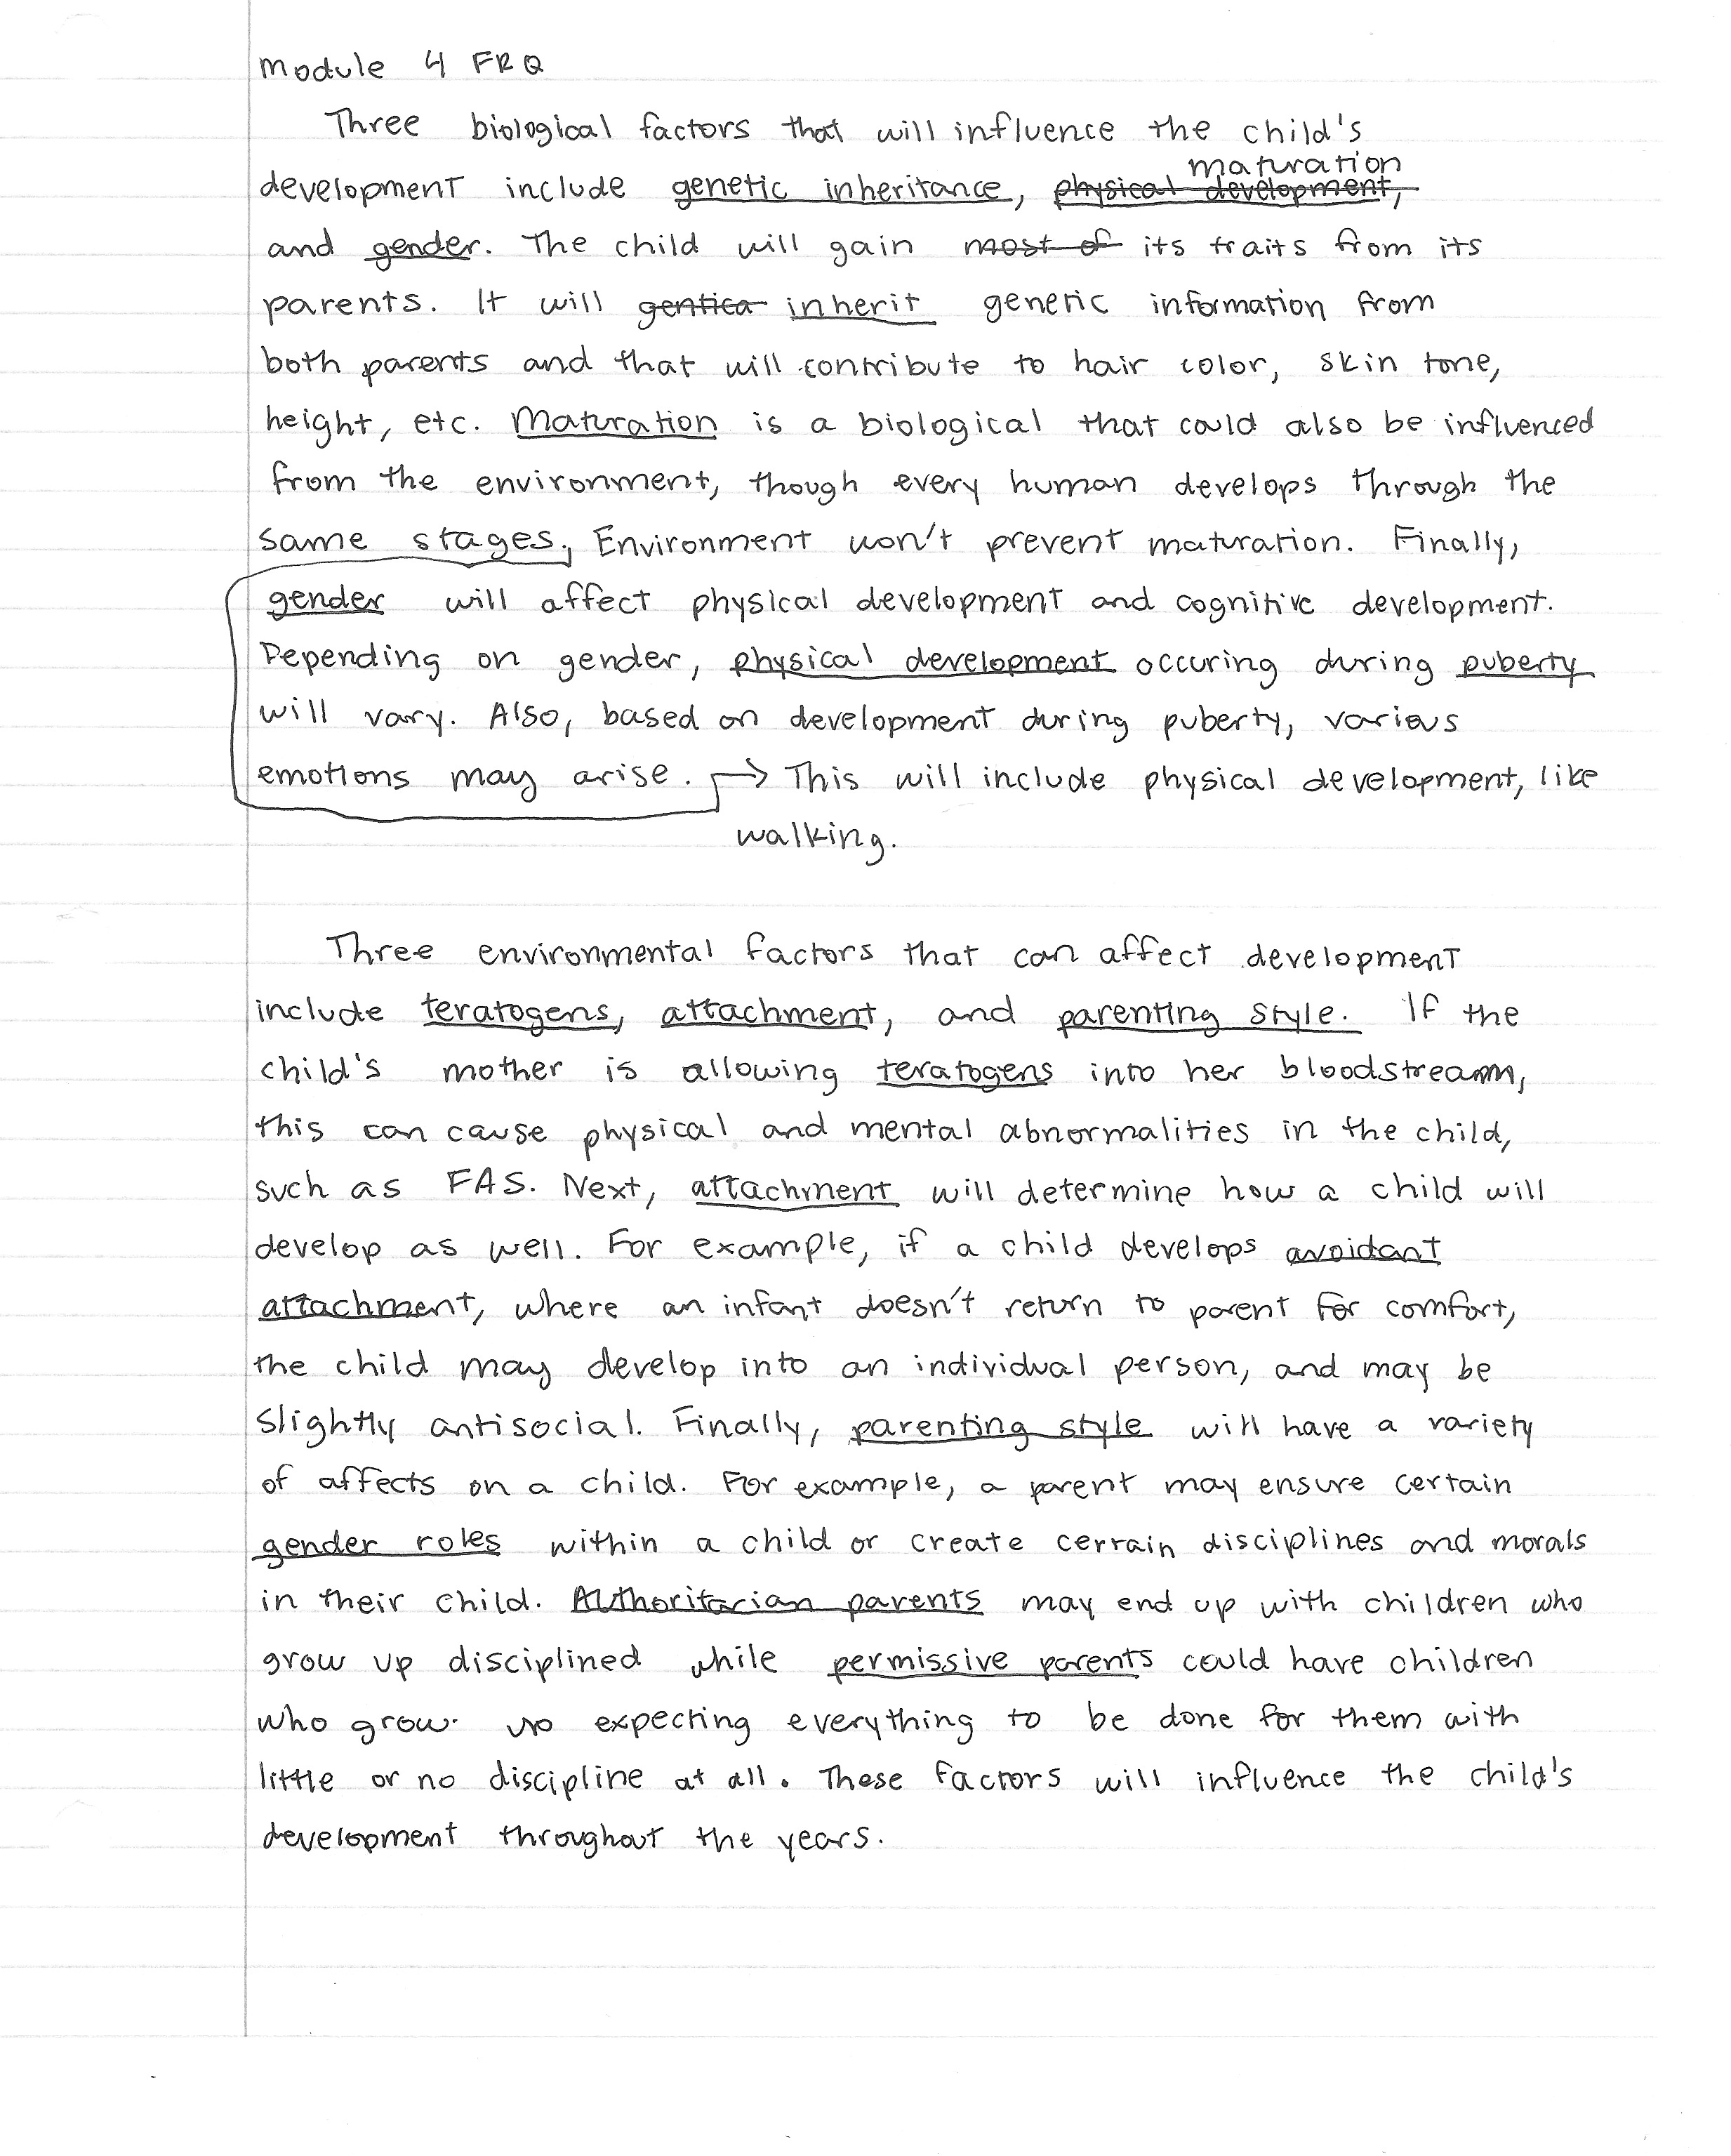 Module 4 FRQ
Three biological factors that will influence the child's
maturation
development include genetic inheritance, physical development,
and gender. The child will gain most of its traits from its
parents. It will gentica inherit genetic information from
both parents and that will contribute to hair color, skin tone,
height, etc. Maturation is a biological that could also be influenced
from the environment, though every human develops through the
same stages. Environment won't prevent maturation. Finally,
gender will affect physical development and cognitive development.
Depending on gender, physical development occuring during puberty
will vary. Also, based on development during puberty, various
emotions may arise. → This will include physical development, like
walking.
Three environmental factors that can affect development
include teratogens, attachment, and parenting style. If the
child's mother is allowing teratogens into her bloodstream,
this can cause physical and mental abnormalities in the child,
such as FAS. Next, attachment will determine how a child will
develop as well. For example, if a child develops avoidant
attachment, where an infant doesn't return to parent for comfort,
the child may develop into an individual person, and may be
slightly antisocial. Finally, parenting style will have a variety
of affects on a child. For example, a parent may ensure certain
gender roles within a child or create certain disciplines and morals
in their child. Authoritarian parents may end up with children who
grow up disciplined while permissive parents could have children
who grow up expecting everything to be done for them with
little or no discipline at all. These factors will influence the child's
development throughout the years.